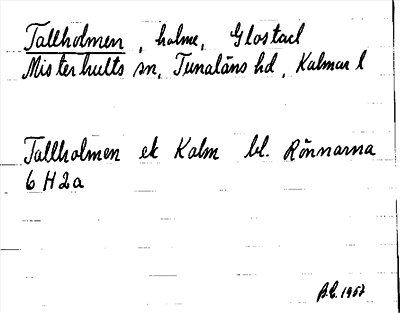 Tallholmen, holme, Glostad
Misterhults sn, Tunaläns hd, Kalmar l
Tallholmen ek Kalm bl. Rönnarna
6 H 2 a
B.E. 1957